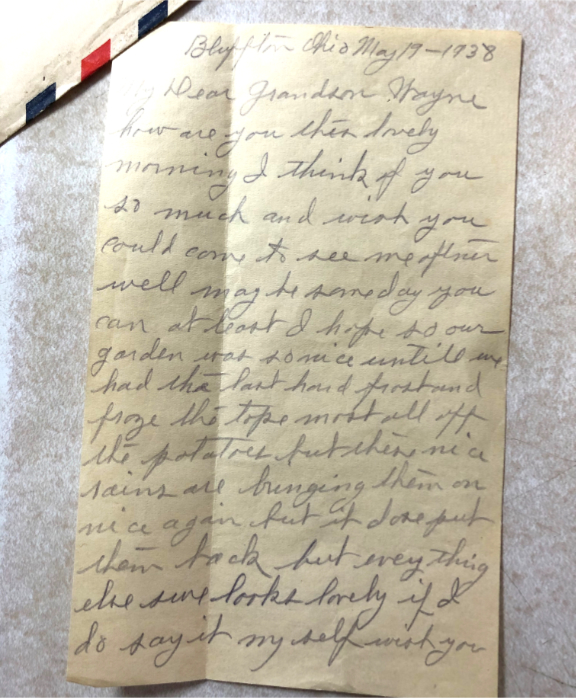 Bluffton Ohio May 19-1938
My Dear Grandson Wayne
how are you this lovely
morning I think of you
so much and wish you
could come to see me oftner
well may be some day you
can at least I hope so our
garden was so nice untill we
had the last hard frost and
froze the tops most all off
the potatoes but these nice
rains are bringing them on
nice again but it dose put
them back but every thing
else sure looks lovely if I
do say it my self wish you